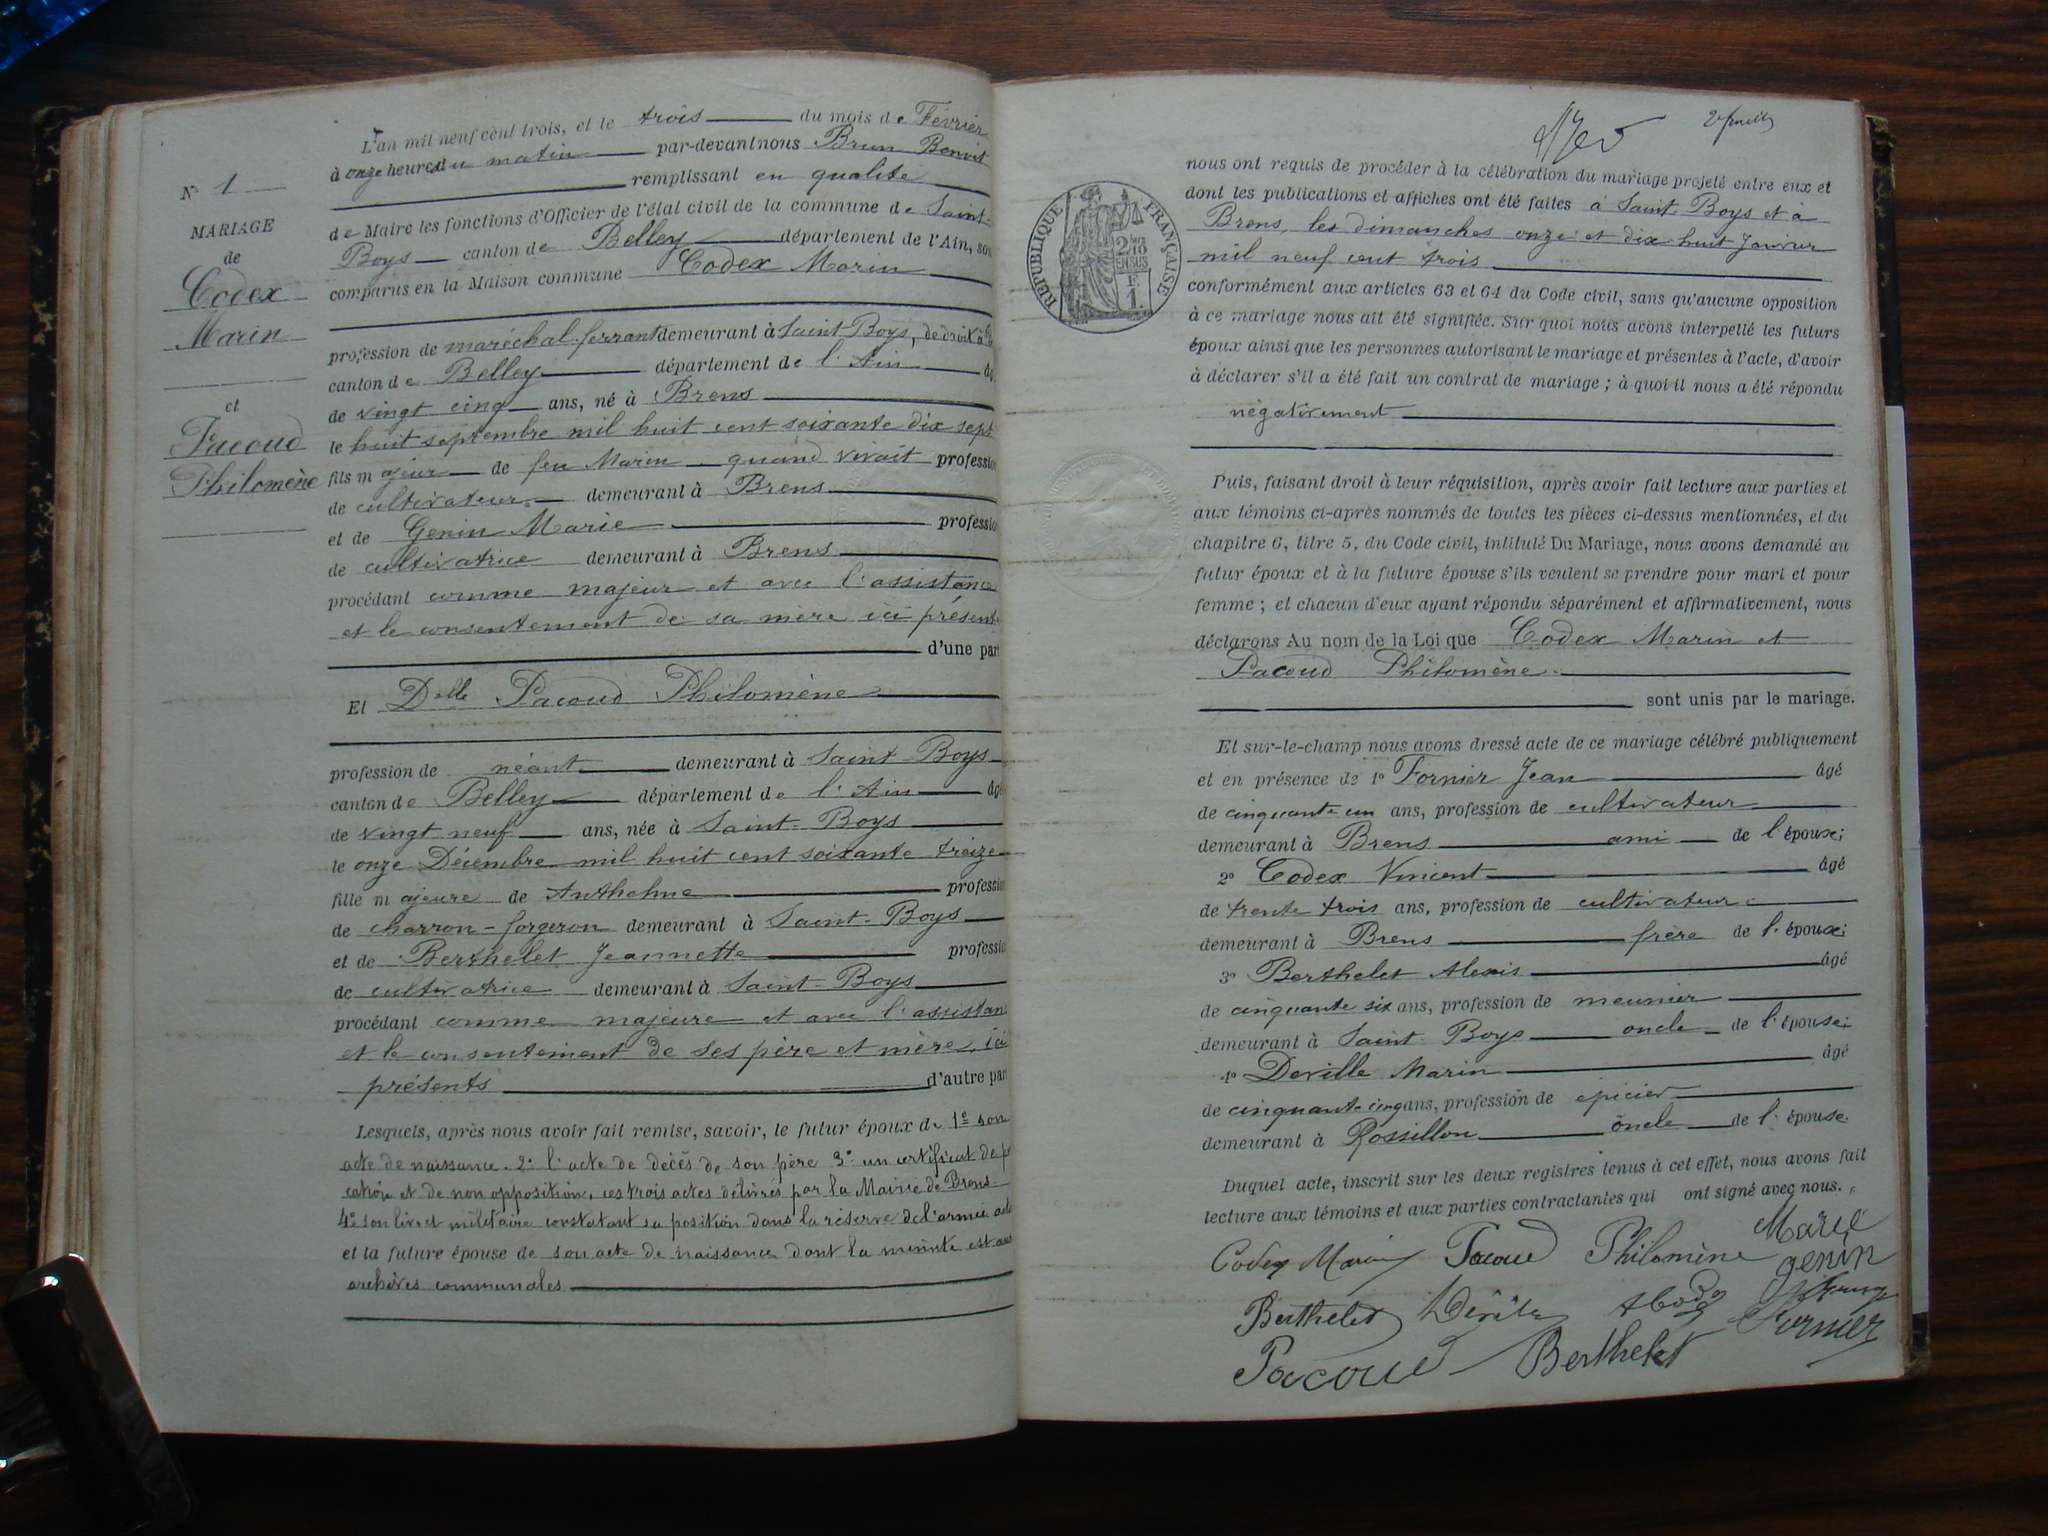 N° 1
MARIAGE
de
Codex
Marin
et
Pacoud
Philomène
L'an mil neuf cent trois, et le trois du mois de Février
à onze heures du matin par-devant nous Brun Benoit
remplissant en qualité
de Maire les fonctions d'Officier de l'état civil de la commune de Saint-
Boys canton de Belley département de l'Ain, son
comparus en la Maison commune Codex Marin
profession de maréchal-ferrant demeurant à Saint-Boys, de droit à
canton de Belley département de l'Ain âg
de vingt cinq ans, né à Brens
le huit septembre mil huit cent soixante dix sept
fils majeur de feu Marin quand vivait profession
de cultivateur demeurant à Brens
et de Genin Marie profession
de cultivatrice demeurant à Brens
procédant comme majeur et avec l'assistance
et le consentement de sa mère ici présente
d'une part
Et Delle Pacoud Philomène
profession de néant demeurant à Saint-Boys
canton de Belley département de l'Ain âgé
de vingt neuf ans, née à Saint-Boys
le onze Décembre mil huit cent soixante treize
fille majeure de Anthelme profession
de charron-forgeron demeurant à Saint-Boys
et de Berthelet Jeannette profession
de cultivatrice demeurant à Saint-Boys
procédant comme majeure et avec l'assistan
et le consentement de ses père et mère, ici
présents d'autre par
Lesquels, après nous avoir fait remise, savoir, le futur époux de 1° son
acte de naissance. 2° l'acte de décès de son père 3° un certificat de p
cation et de non opposition, ces trois actes délivrés par la Mairie de Brens
4° son livret militaire constatant sa position dans la réserve de l'armée acti
et la future épouse de son acte de naissance dont la minute est aux
archives communales
2e feuillet
RÉPUBLIQUE FRANÇAISE
2/10 EN SUS
1 F.
nous ont requis de procéder à la célébration du mariage projeté entre eux et
dont les publications et affiches ont été faites à Saint-Boys et à
Brens, les dimanches onze et dix huit Janvier
mil neuf cent trois
conformément aux articles 63 et 64 du Code civil, sans qu'aucune opposition
à ce mariage nous ait été signifiée. Sur quoi nous avons interpellé les futurs
époux ainsi que les personnes autorisant le mariage et présentes à l'acte, d'avoir
à déclarer s'il a été fait un contrat de mariage ; à quoi il nous a été répondu
négativement
Puis, faisant droit à leur réquisition, après avoir fait lecture aux parties et
aux témoins ci-après nommés de toutes les pièces ci-dessus mentionnées, et du
chapitre 6, titre 5, du Code civil, intitulé Du Mariage, nous avons demandé au
futur époux et à la future épouse s'ils veulent se prendre pour mari et pour
femme ; et chacun d'eux ayant répondu séparément et affirmativement, nous
déclarons Au nom de la Loi que Codex Marin et
Pacoud Philomène
sont unis par le mariage.
Et sur-le-champ nous avons dressé acte de ce mariage célébré publiquement
et en présence de 1° Fornier Jean âgé
de cinquante un ans, profession de cultivateur
demeurant à Brens ami de l'époux;
2° Codex Vincent âgé
de trente trois ans, profession de cultivateur
demeurant à Brens frère de l'époux;
3° Berthelet Alexis âgé
de cinquante six ans, profession de meunier
demeurant à Saint-Boys oncle de l'épouse;
4° Deville Marin âgé
de cinquante cinq ans, profession de épicier
demeurant à Rossillon oncle de l'épouse
Duquel acte, inscrit sur les deux registres tenus à cet effet, nous avons fait
lecture aux témoins et aux parties contractantes qui ont signé avec nous.
Codex Marin Pacoud Philomène Marie
genin
Berthelet Fornier
Pacoud Berthelet